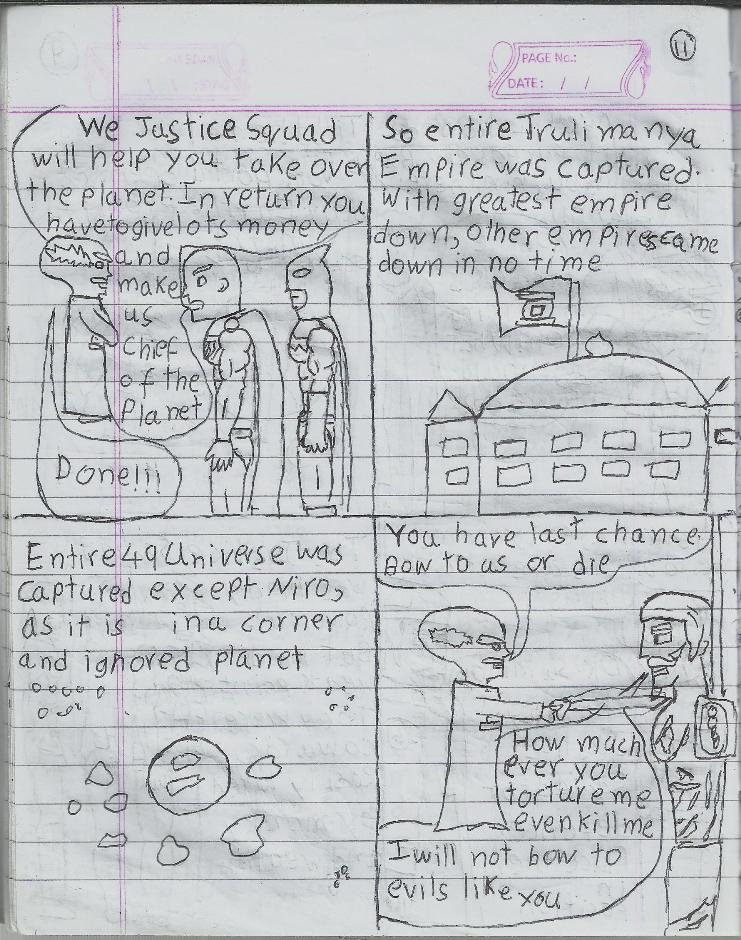 11
PAGE No.:
DATE: / /
We Justice Squad
will help you take over
the planet. In return you
have to give lots money
and
make
us
Chief
of the
Planet
Done!!!
So entire Trulimanya
Empire was captured.
With greatest empire
down, other empires came
down in no time
Entire 49 Universe was
captured except Niro,
as it is in a corner
and ignored planet
You have last chance.
Bow to us or die
How much
ever you
torture me
even kill me
I will not bow to
evils like you